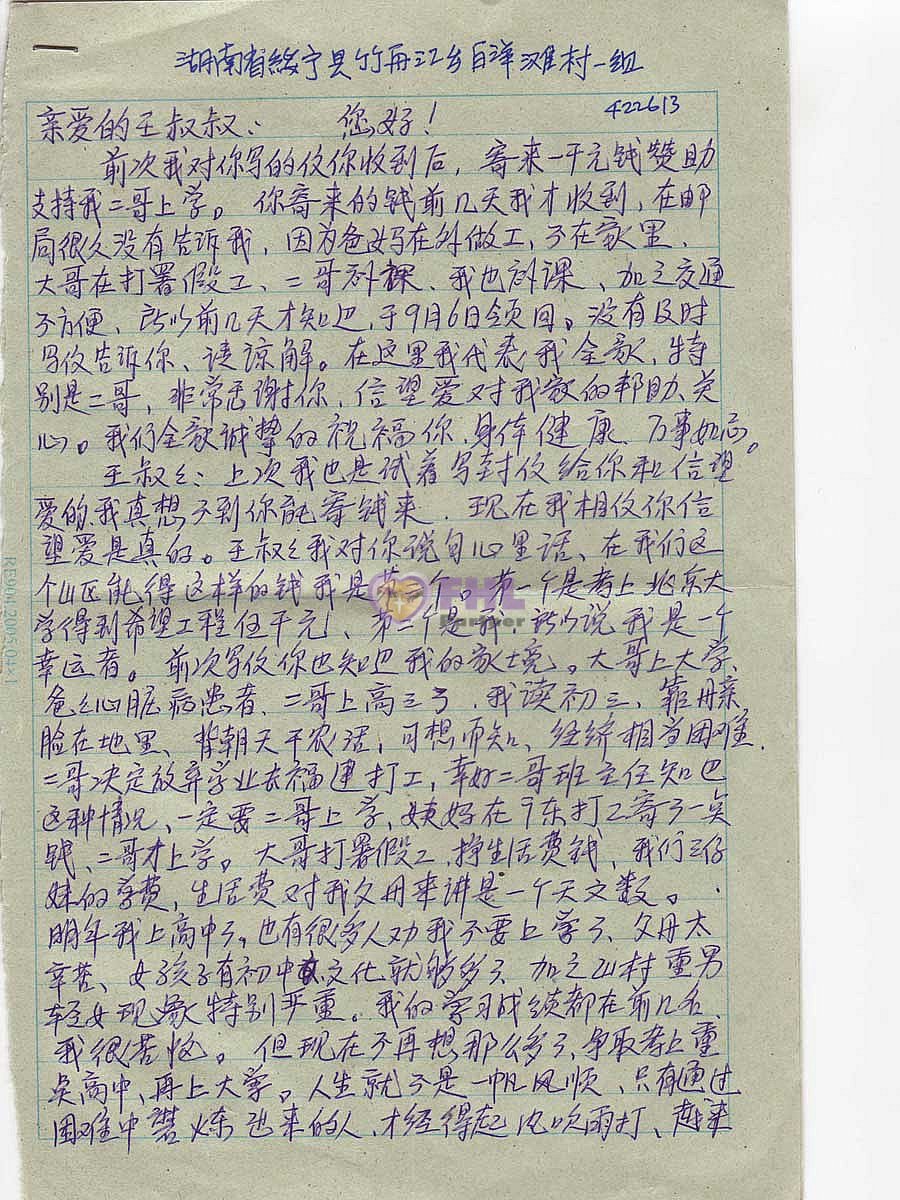 湖南省绥宁县竹舟江乡白洋滩村一组
422613
亲爱的王叔叔: 您好!
前次我对你写的仪你收到后,寄来一千元钱赞助
支持我二哥上学。你寄来的钱前几天我才收到,在邮
局很久没有告诉我,因为爸妈在外做工,不在家里.
大哥在打署假工、二哥补课、我也补课、加之交通
不方便、所以前几天才知道,于9月6日领回。没有及时
写仪告诉你、请谅解。在这里我代表我全家,特
别是二哥,非常感谢你,信望爱对我家的帮助、关
心。我们全家诚挚的祝福你、身体健康、万事如意。
王叔叔:上次我也是试着写封仪给你和信望
爱的、我真想不到你能寄钱来.现在我相仪你信
望爱是真的。王叔叔我对你说句心里话、在我们这
个山区能得这样的钱我是第二个。第一个是考上北京大
学得到希望工程伍千元、第二个是我,所以说我是一个
幸运者。前次写仪你也知道我的家境。大哥上大学、
爸爸心脏病患者、二哥上高三了.我读初三、靠母亲
脸在地里、背朝天干农活,可想而知、经济相当困难.
二哥决定放弃学业去福建打工,幸好二哥班主任知道
这种情况、一定要二哥上学、姨妈在广东打工寄了一点
钱、二哥才上学。大哥打署假工、挣生活费钱、我们三仔
妹的学费,生活费对我父母来讲是一个天文数。
明年我上高中了,也有很多人劝我不要上学了、父母太
辛苦、女孩子有初中文化就够多了、加之山村重男
轻女现象特别严重。我的学习成绩都在前几名、
我很苦恼。但现在不再想那么多了、争取考上重
点高中、再上大学。人生就不是一帆风顺、只有通过
困难中磐炼过来的人、才经得起风吹雨打、越来
RE90M.2005.04
FHL
Partner